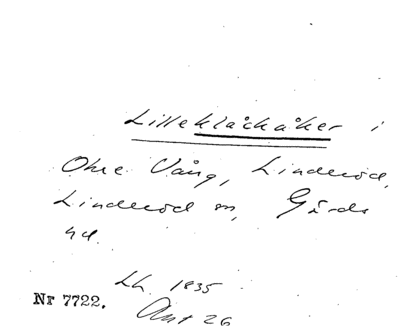 Lilleklåckåker i
Ohre Vång, Linderöd,
Linderöd sn, Gärds
hd.
Lh. 1835
Akt 26
Nr 7722.